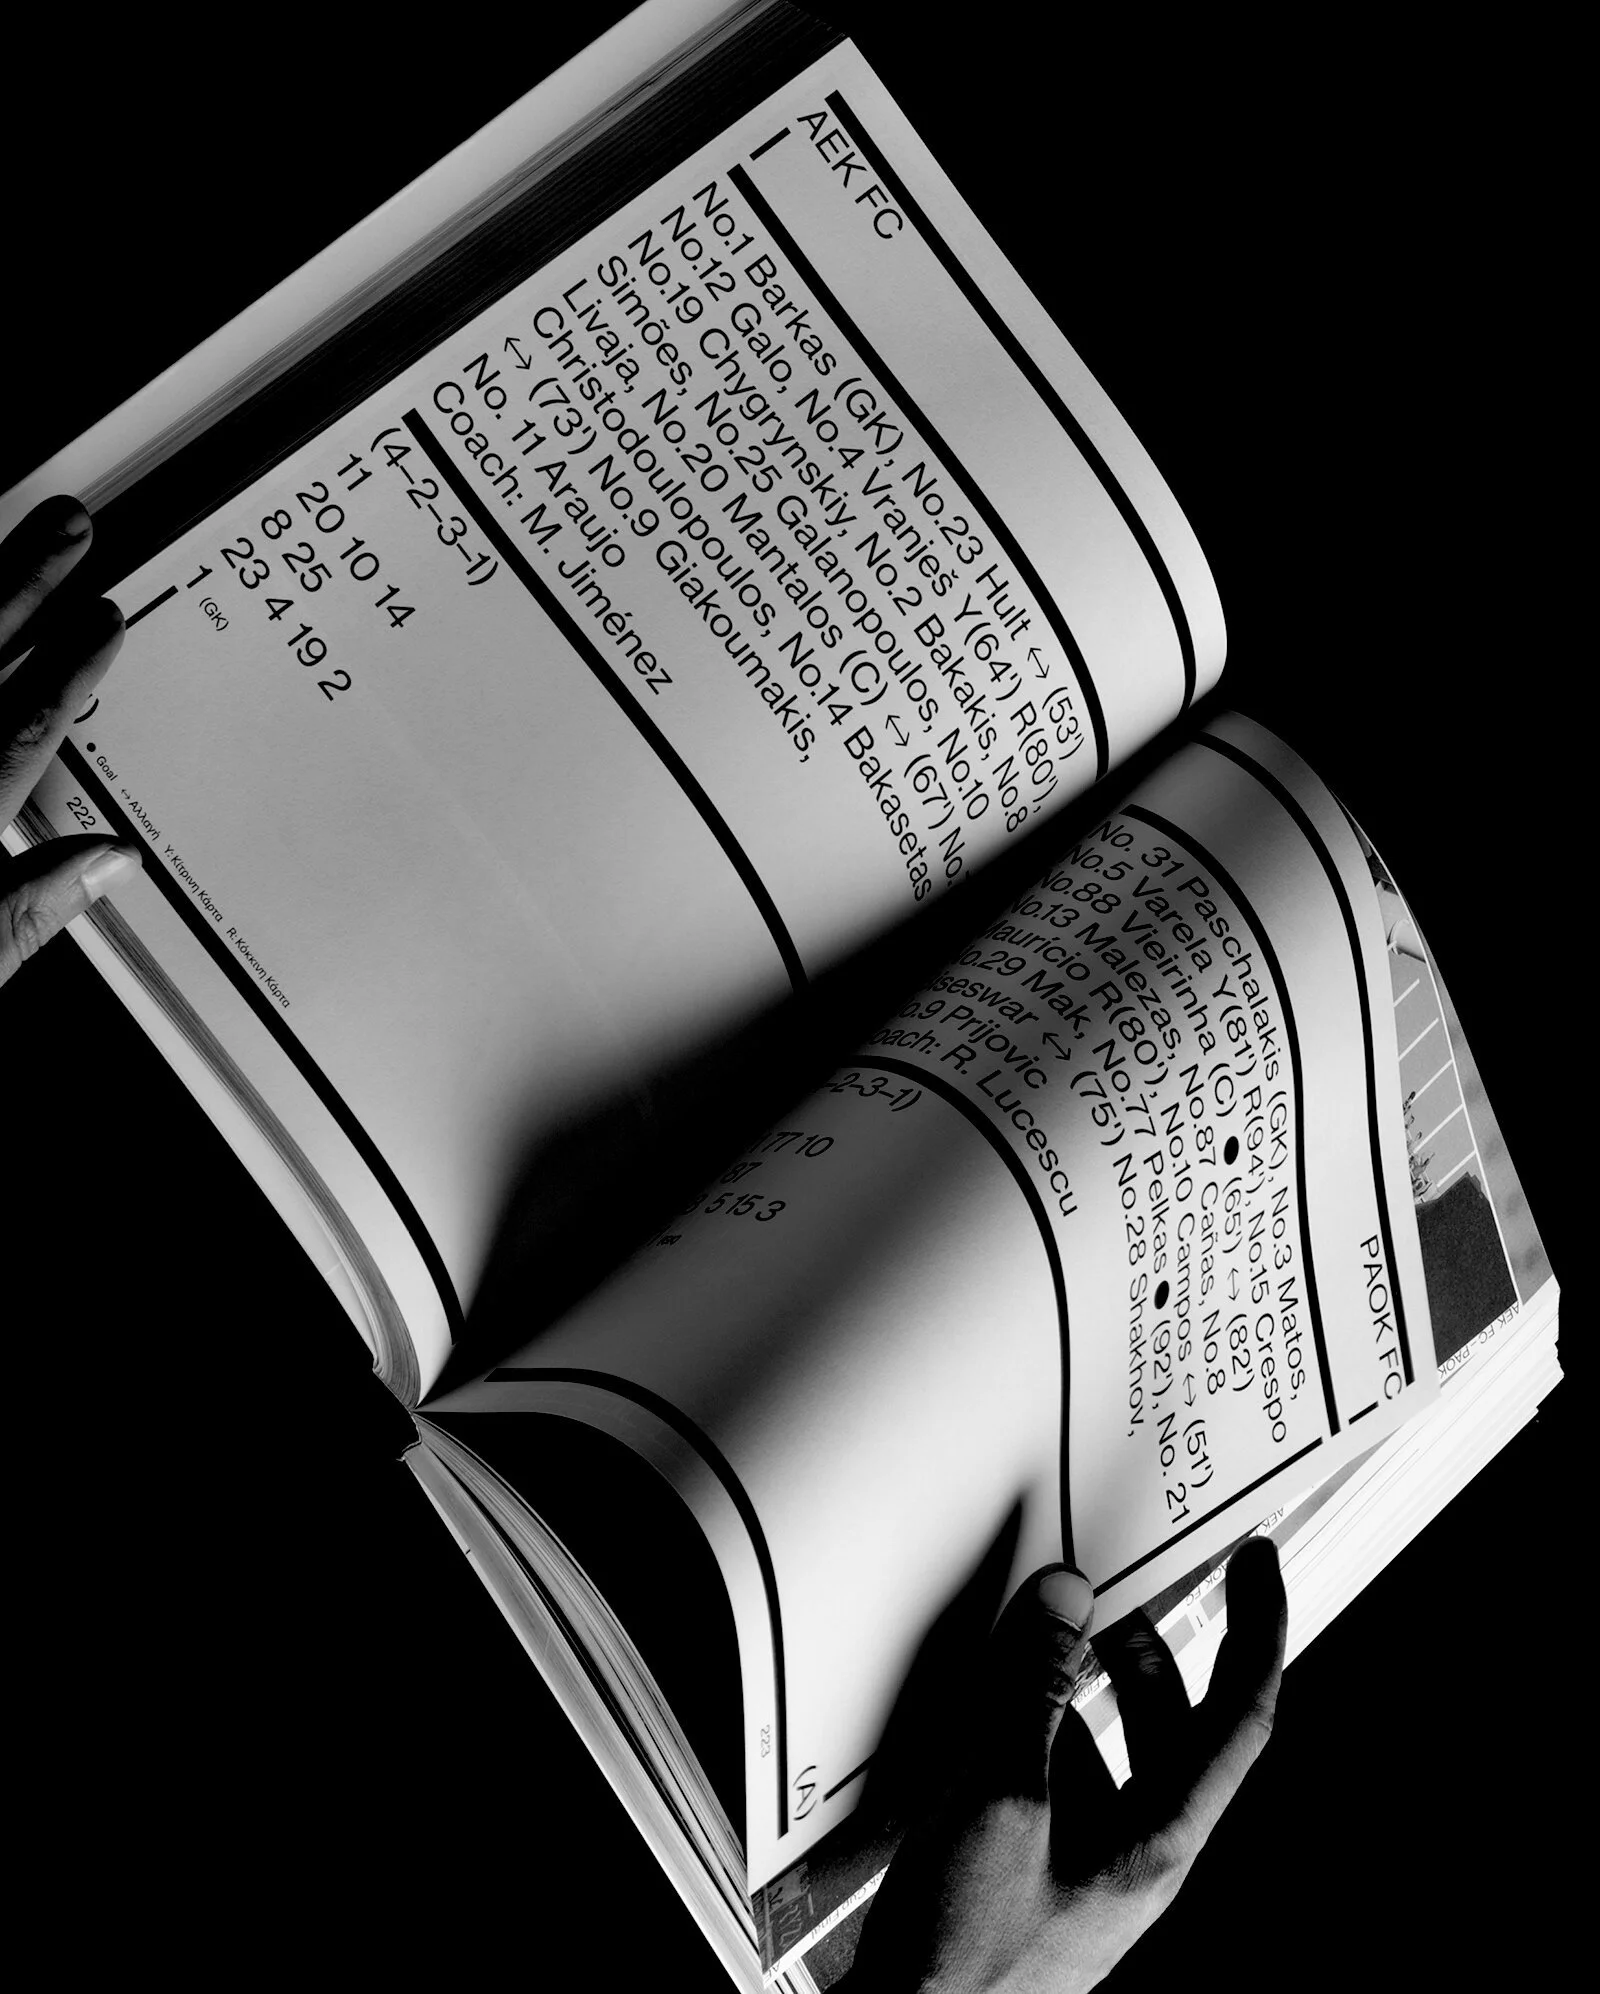 AEK FC
No.1 Barkas (GK), No.23 Hult ↔ (53')
No.12 Galo, No.4 Vranješ Y(64') R(80'),
No.19 Chygrynskiy, No.2 Bakakis, No.8
Simões, No.25 Galanopoulos, No.10
Livaja, No.20 Mantalos (C) ↔ (67') No.
Christodoulopoulos, No.14 Bakasetas
↔ (73') No.9 Giakoumakis,
No. 11 Araujo
Coach: M. Jiménez
(4–2–3–1)
11
20 10 14
8 25
23 4 19 2
1 (GK)
● Goal ↔ Αλλαγή Y: Κίτρινη Κάρτα R: Κόκκινη Κάρτα
222
PAOK FC
No. 31 Paschalakis (GK), No.3 Matos,
No.5 Varela Y(81') R(94'), No.15 Crespo
No.88 Vieirinha (C) ● (65') ↔ (82')
No.13 Malezas, No.87 Cañas, No.8
Maurício R(80'), No.10 Campos ↔ (51')
No.29 Mak, No.77 Pelkas ● (92'), No. 21
↔ (75') No.28 Shakhov,
No.9 Prijovic
Coach: R. Lucescu
–2–3–1)
77 10
87
5 15 3
223
(A)
AEK FC – PAOK